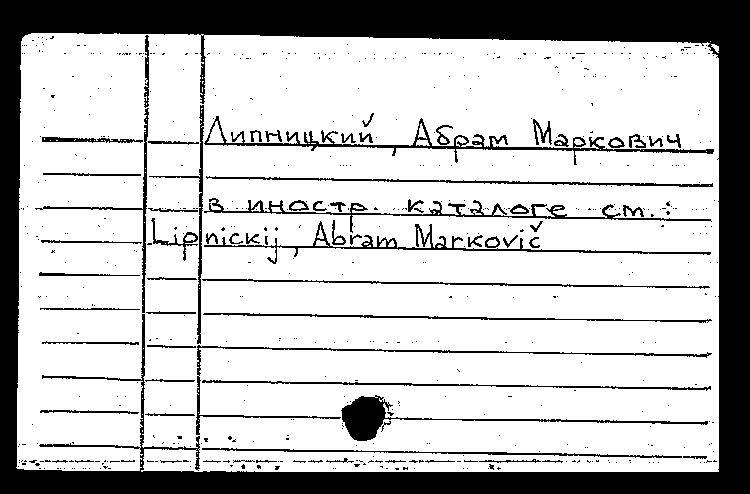 Липницкий, Абрам Маркович
в иностр. каталоге см.:
Lipnickij, Abram Markovič